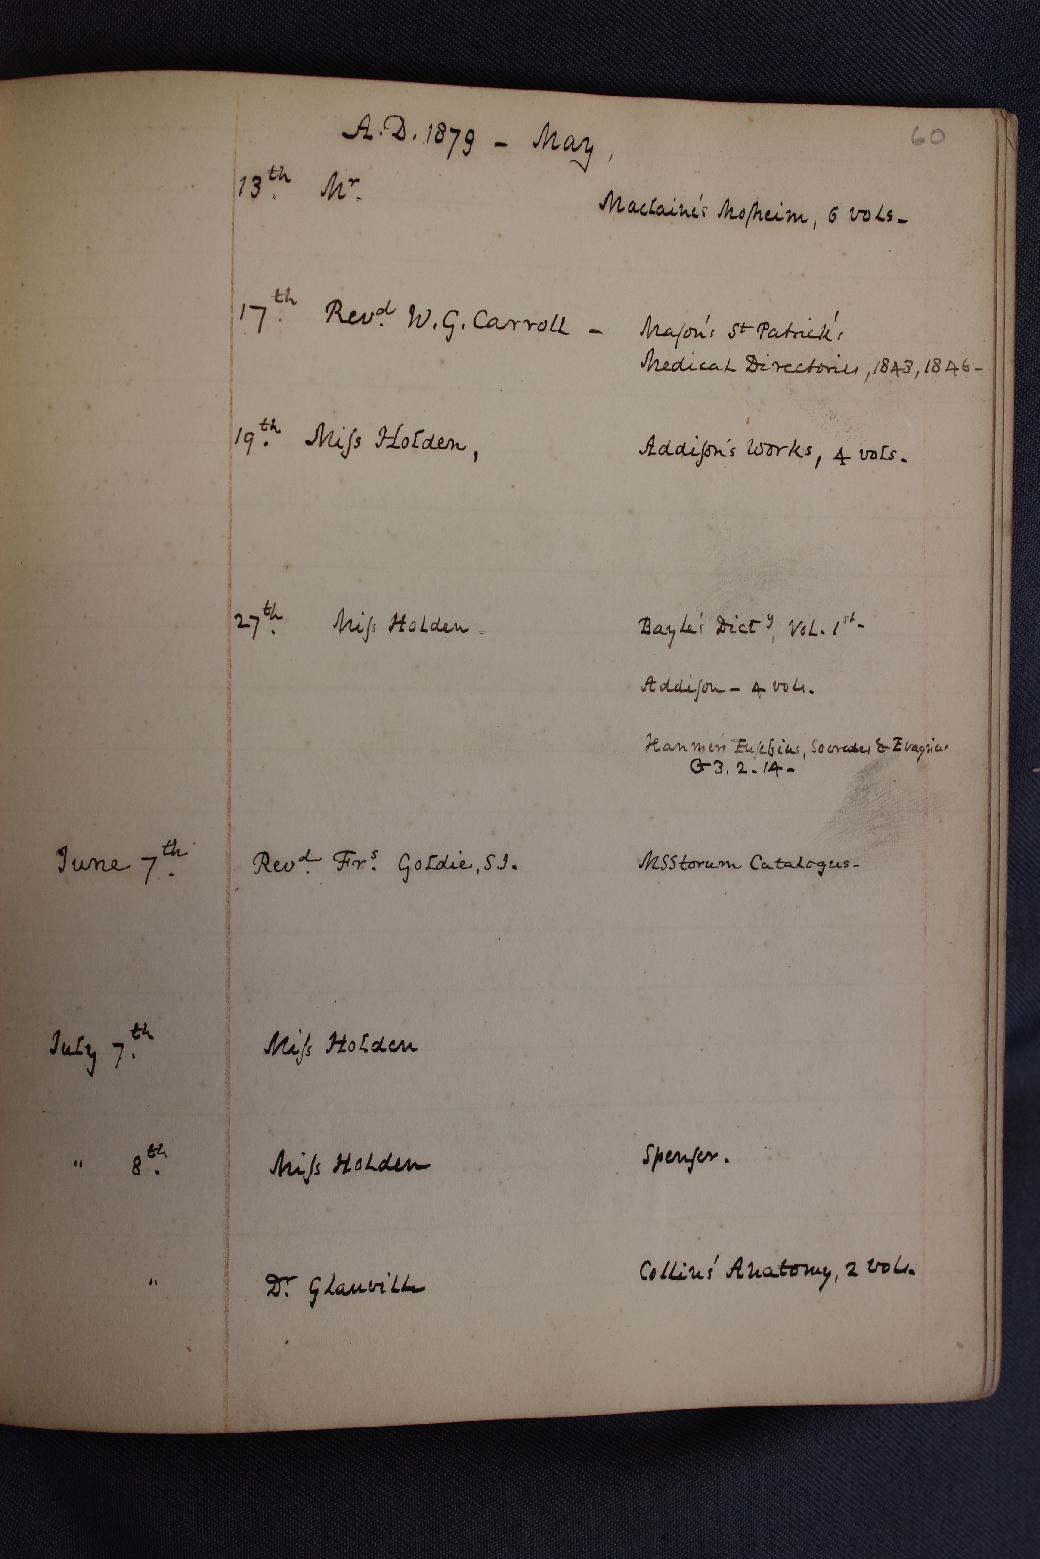 60
A.D. 1879 - May,
13th. Mr. Maclaine's Mosheim, 6 vols-
17th. Revd. W.G. Carroll - Mason's St Patrick's
Medical Directories, 1843, 1846-
19th. Miss Holden, Addison's Works, 4 vols.
27th. Miss Holden - Bayle's Dicty, Vol. 1st-
Addison - 4 vols.
Hanmer's Eusebius, Socrates, & Evagrius
G 3. 2. 14-
June 7th. Revd. Frs. Goldie, S.J. MSStorum Catalogus-
July 7th. Miss Holden
" 8th. Miss Holden Spenser.
" Dr. Glanville Collins' Anatomy, 2 vols.